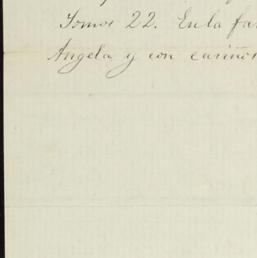 Somos 22. En la fa
Angela y con cariño